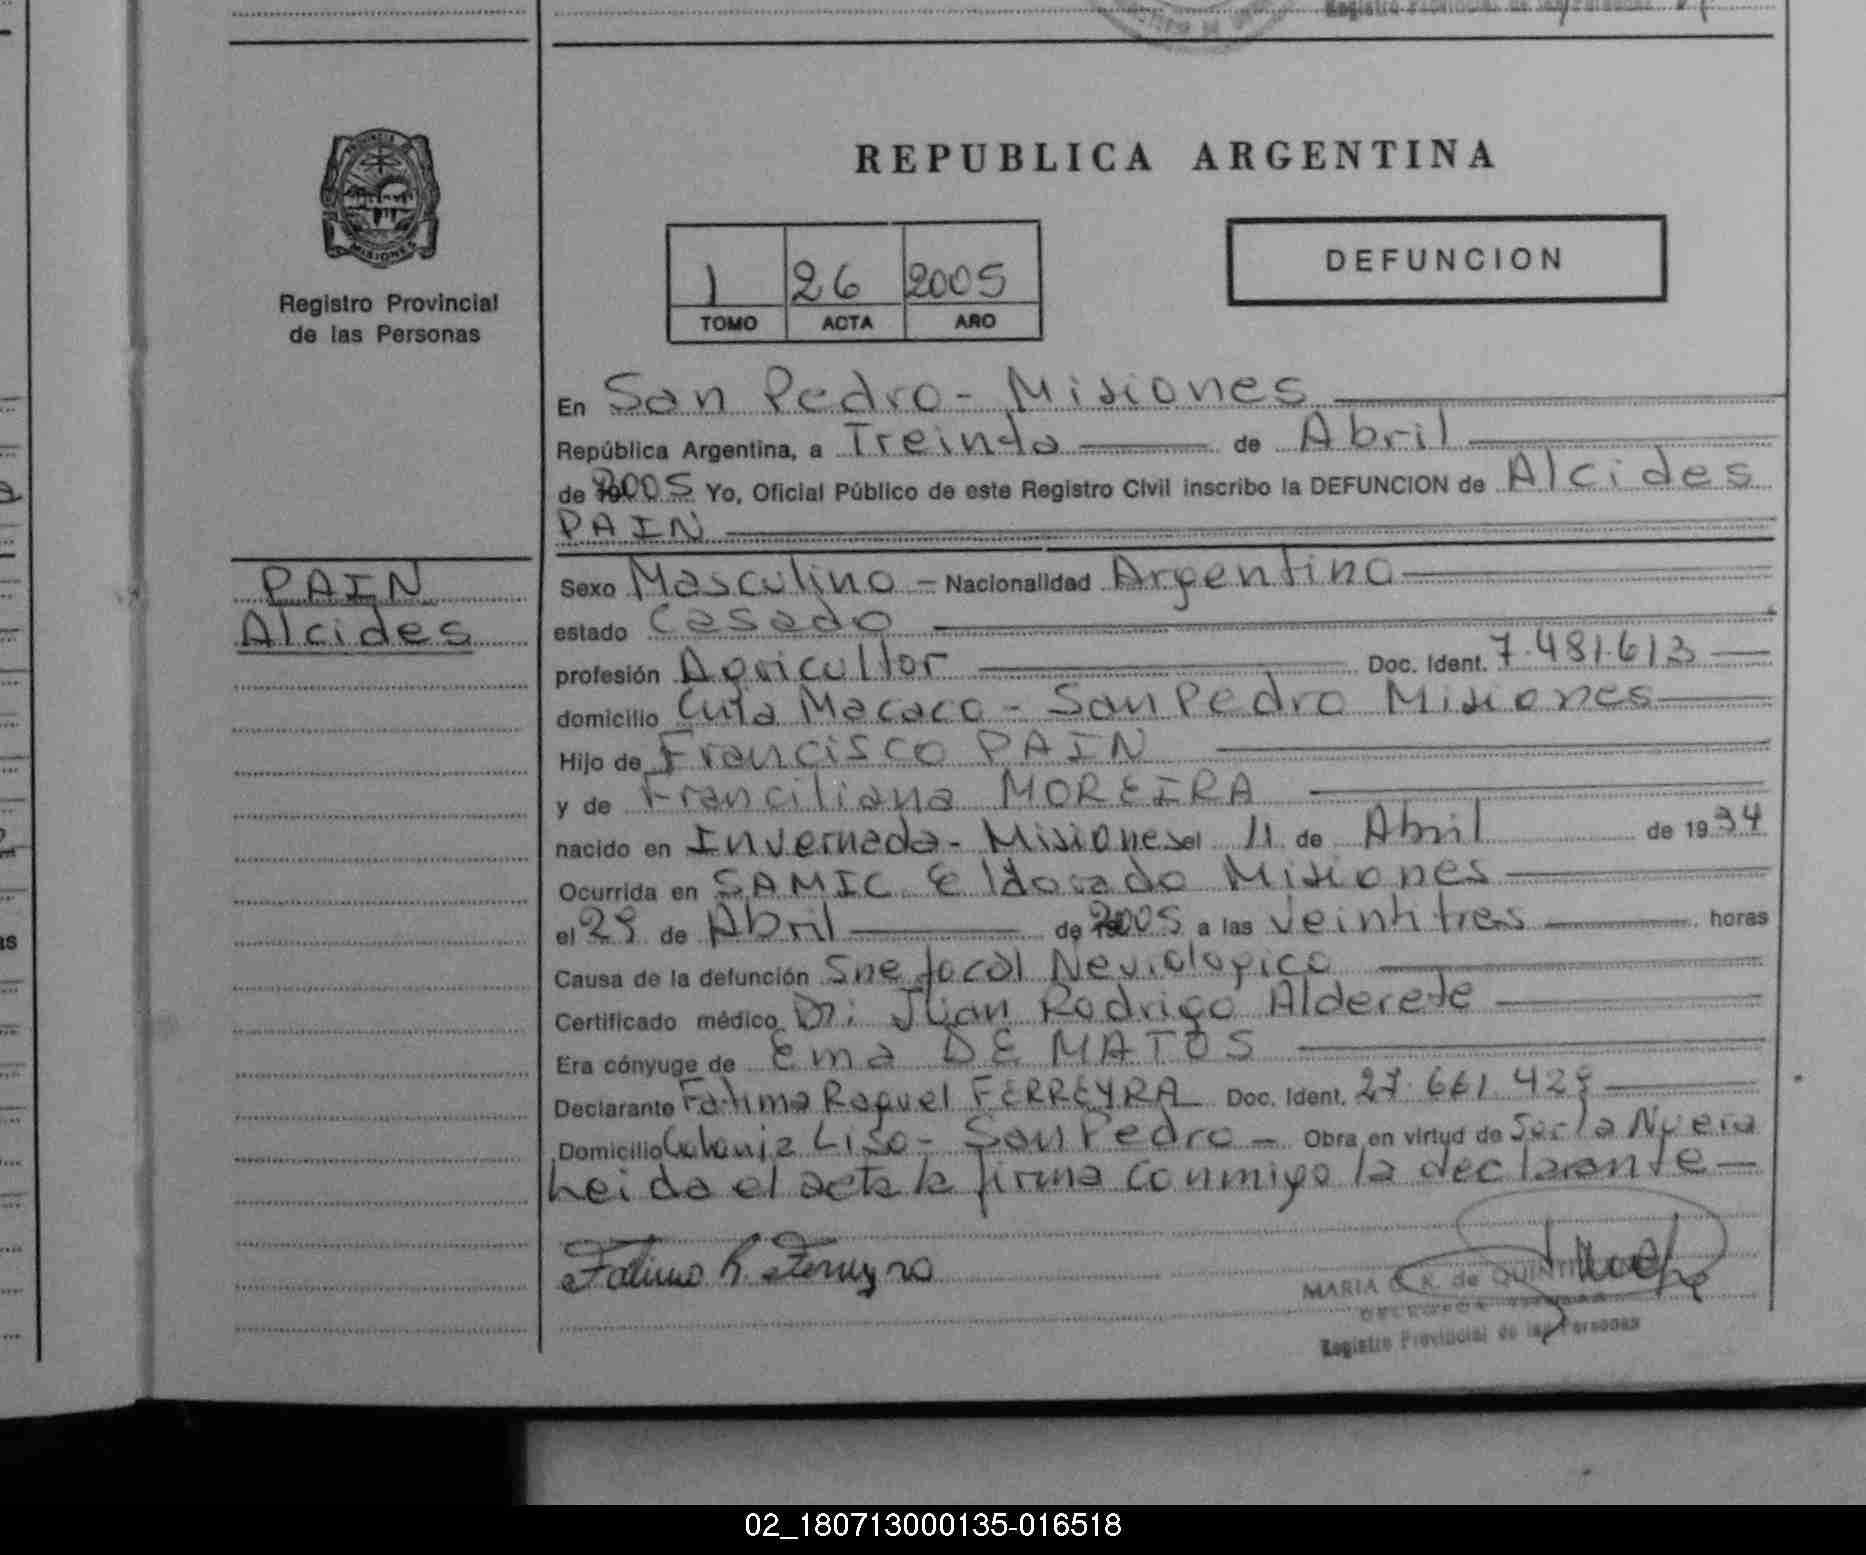 Registro Provincial de las Personas
PROVINCIA DE
MISIONES
Registro Provincial
de las Personas
REPUBLICA ARGENTINA
1 26 2005
TOMO ACTA AÑO
DEFUNCION
En San Pedro - Misiones
República Argentina, a Treinta de Abril
de 2005 Yo, Oficial Público de este Registro Civil inscribo la DEFUNCION de Alcides
PAIN
PAIN
Alcides
Sexo Masculino - Nacionalidad Argentino
estado Casado
profesión Agricultor Doc. Ident. 7.481.613
domicilio Cuña Macaco - San Pedro Misiones
Hijo de Francisco PAIN
y de Franciliana MOREIRA
nacido en Invernada - Misiones el 11 de Abril de 1934
Ocurrida en SAMIC Eldorado Misiones
el 29 de Abril de 2005 a las veintitres horas
Causa de la defunción Sne focal Neurologico
Certificado médico Dr: Juan Rodrigo Alderete
Era cónyuge de Ema DE MATOS
Declarante Fatima Raquel FERREYRA Doc. Ident. 27.661.429
Domicilio Colonia Liso - San Pedro - Obra en virtud de Ser la Nuera
Leida el acta la firma conmigo la declarante -
Fatima R. Ferreyra
MARIA de
Registro Provincial de las Personas
02_180713000135-016518